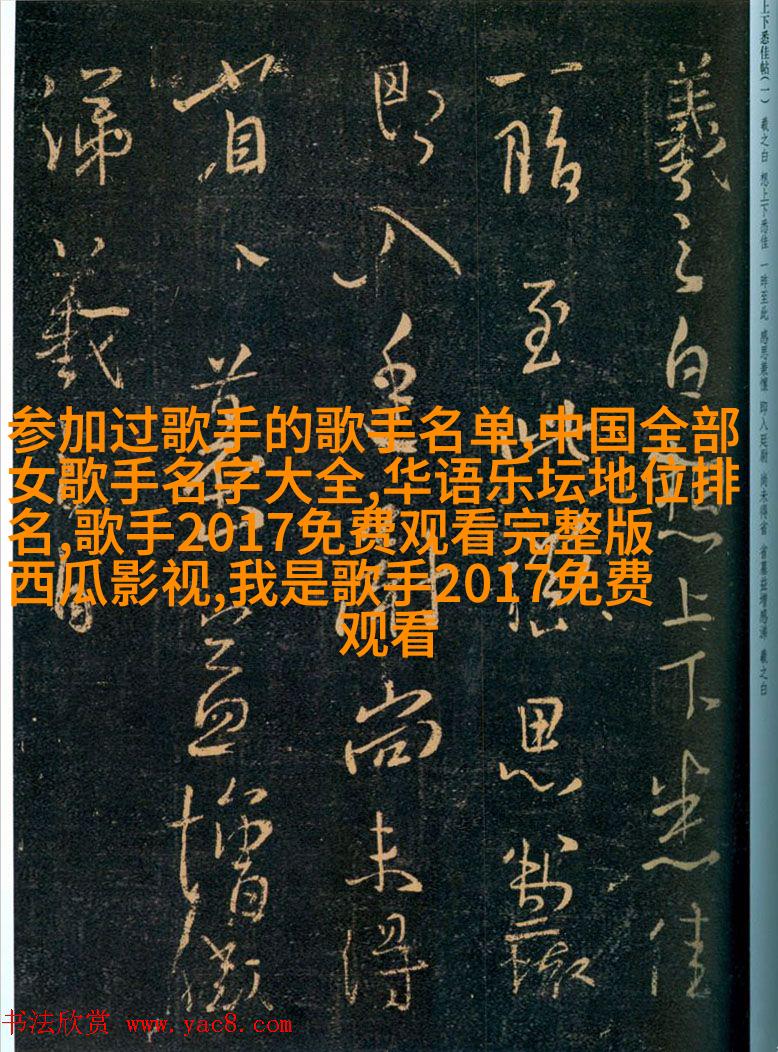 参加过歌手的歌手名单,中国全部
女歌手名字大全,华语乐坛地位排
名,歌手2017免费观看完整版
西瓜影视,我是歌手2017免费
观看
上下悉佳帖(一) 羲之白 想上下悉佳 一昨至此 感思 即入廷尉 尚未得省 省墓益增感涕 羲之白
羲之白想上下悉佳
一 至此感思
即入 尚未得
省、墓益增感
涕羲之白
书法欣赏 www.yac8.com